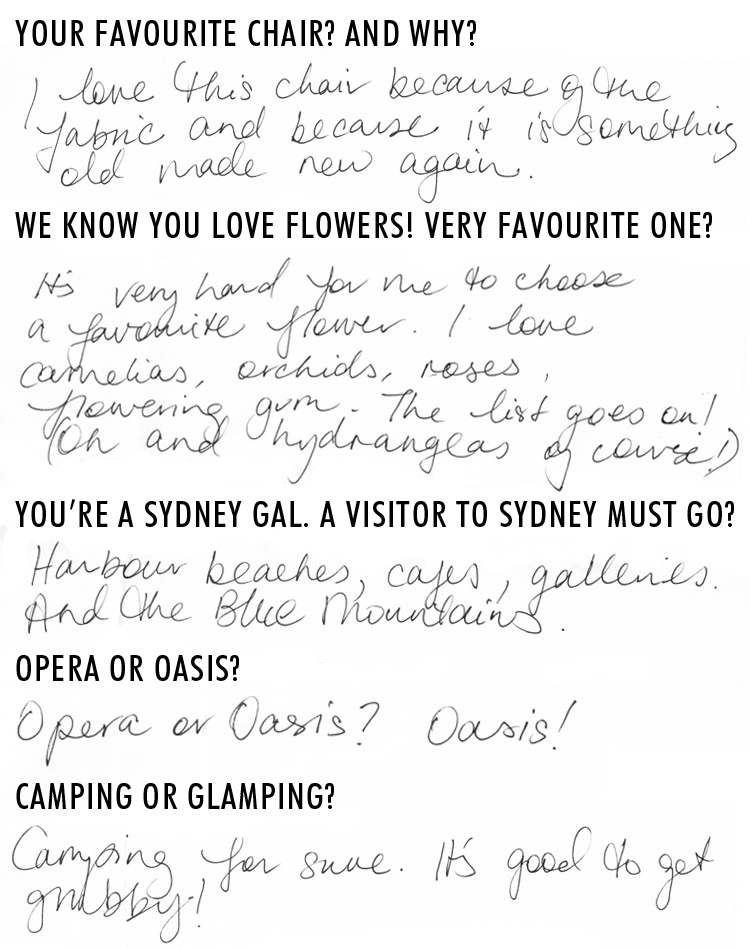 YOUR FAVOURITE CHAIR? AND WHY?
I love this chair because of the
fabric and because it is something
old made new again.
WE KNOW YOU LOVE FLOWERS! VERY FAVOURITE ONE?
It's very hard for me to choose
a favourite flower. I love
camelias, orchids, roses,
flowering gum. The list goes on!
(Oh and hydrangeas of course!)
YOU'RE A SYDNEY GAL. A VISITOR TO SYDNEY MUST GO?
Harbour beaches, cafes, galleries.
And the Blue Mountains.
OPERA OR OASIS?
Opera or Oasis? Oasis!
CAMPING OR GLAMPING?
Camping for sure. It's good to get
grubby!